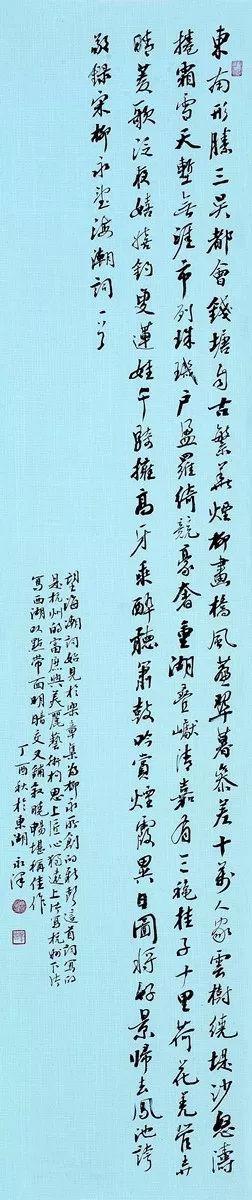 東南形勝三吳都會錢塘自古繁華煙柳畫橋風簾翠幕參差十萬人家雲樹繞堤沙怒濤
捲霜雪天塹無涯市列珠璣戶盈羅綺競豪奢重湖疊巘清嘉有三穐桂子十里荷花羌管弄
晴菱歌泛夜嬉嬉釣叟蓮娃千騎擁高牙乘醉聽簫鼓吟賞煙霞異日圖將好景歸去鳳池誇
敬録宋柳永望海潮詞一首
望海潮詞始見於樂章集為柳永所創的新聲這首詞寫的
是杭州的富庶與美麗藝術构思上匠心獨運上片寫杭州下片
寫西湖以點帶面明暗交叉鋪叙曉暢堪稱佳作
丁酉秋於東湖永澤